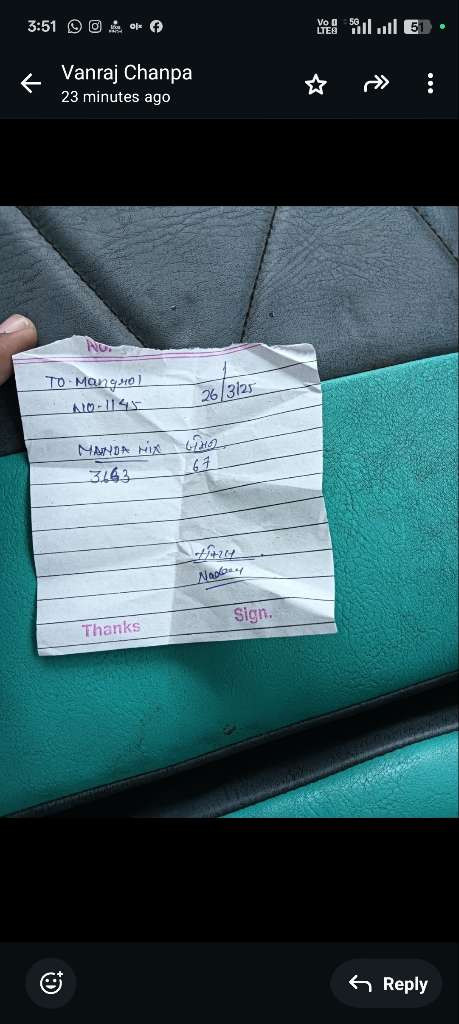 3:51
Vo LTE
5G
51
Vanraj Chanpa
23 minutes ago
No.
TO-Mangrol
26/3/25
NO-1145
MANDA MIX
3663
67
Thanks
Sign.
Reply